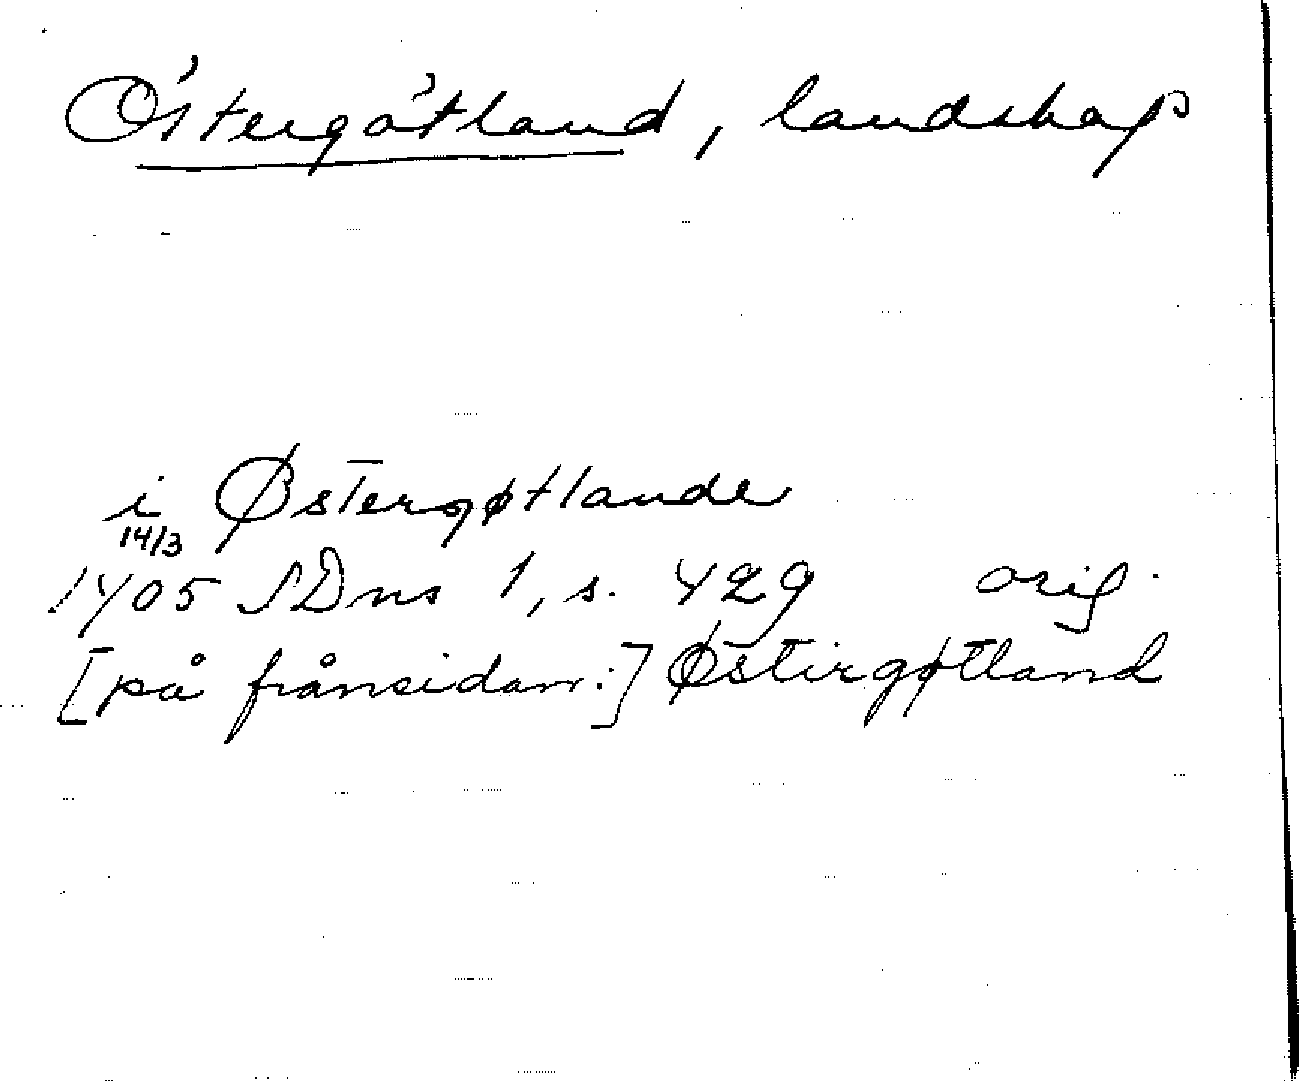 Östergötland, landskap
i Østergøtlande
14/3
1405 SDns 1, s. 429 orig.
[på frånsidan:] Østirgøtland